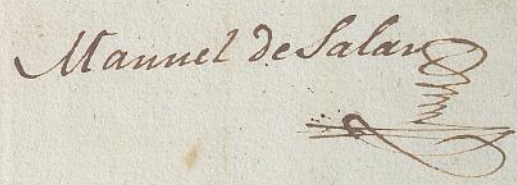 Manuel de Salas